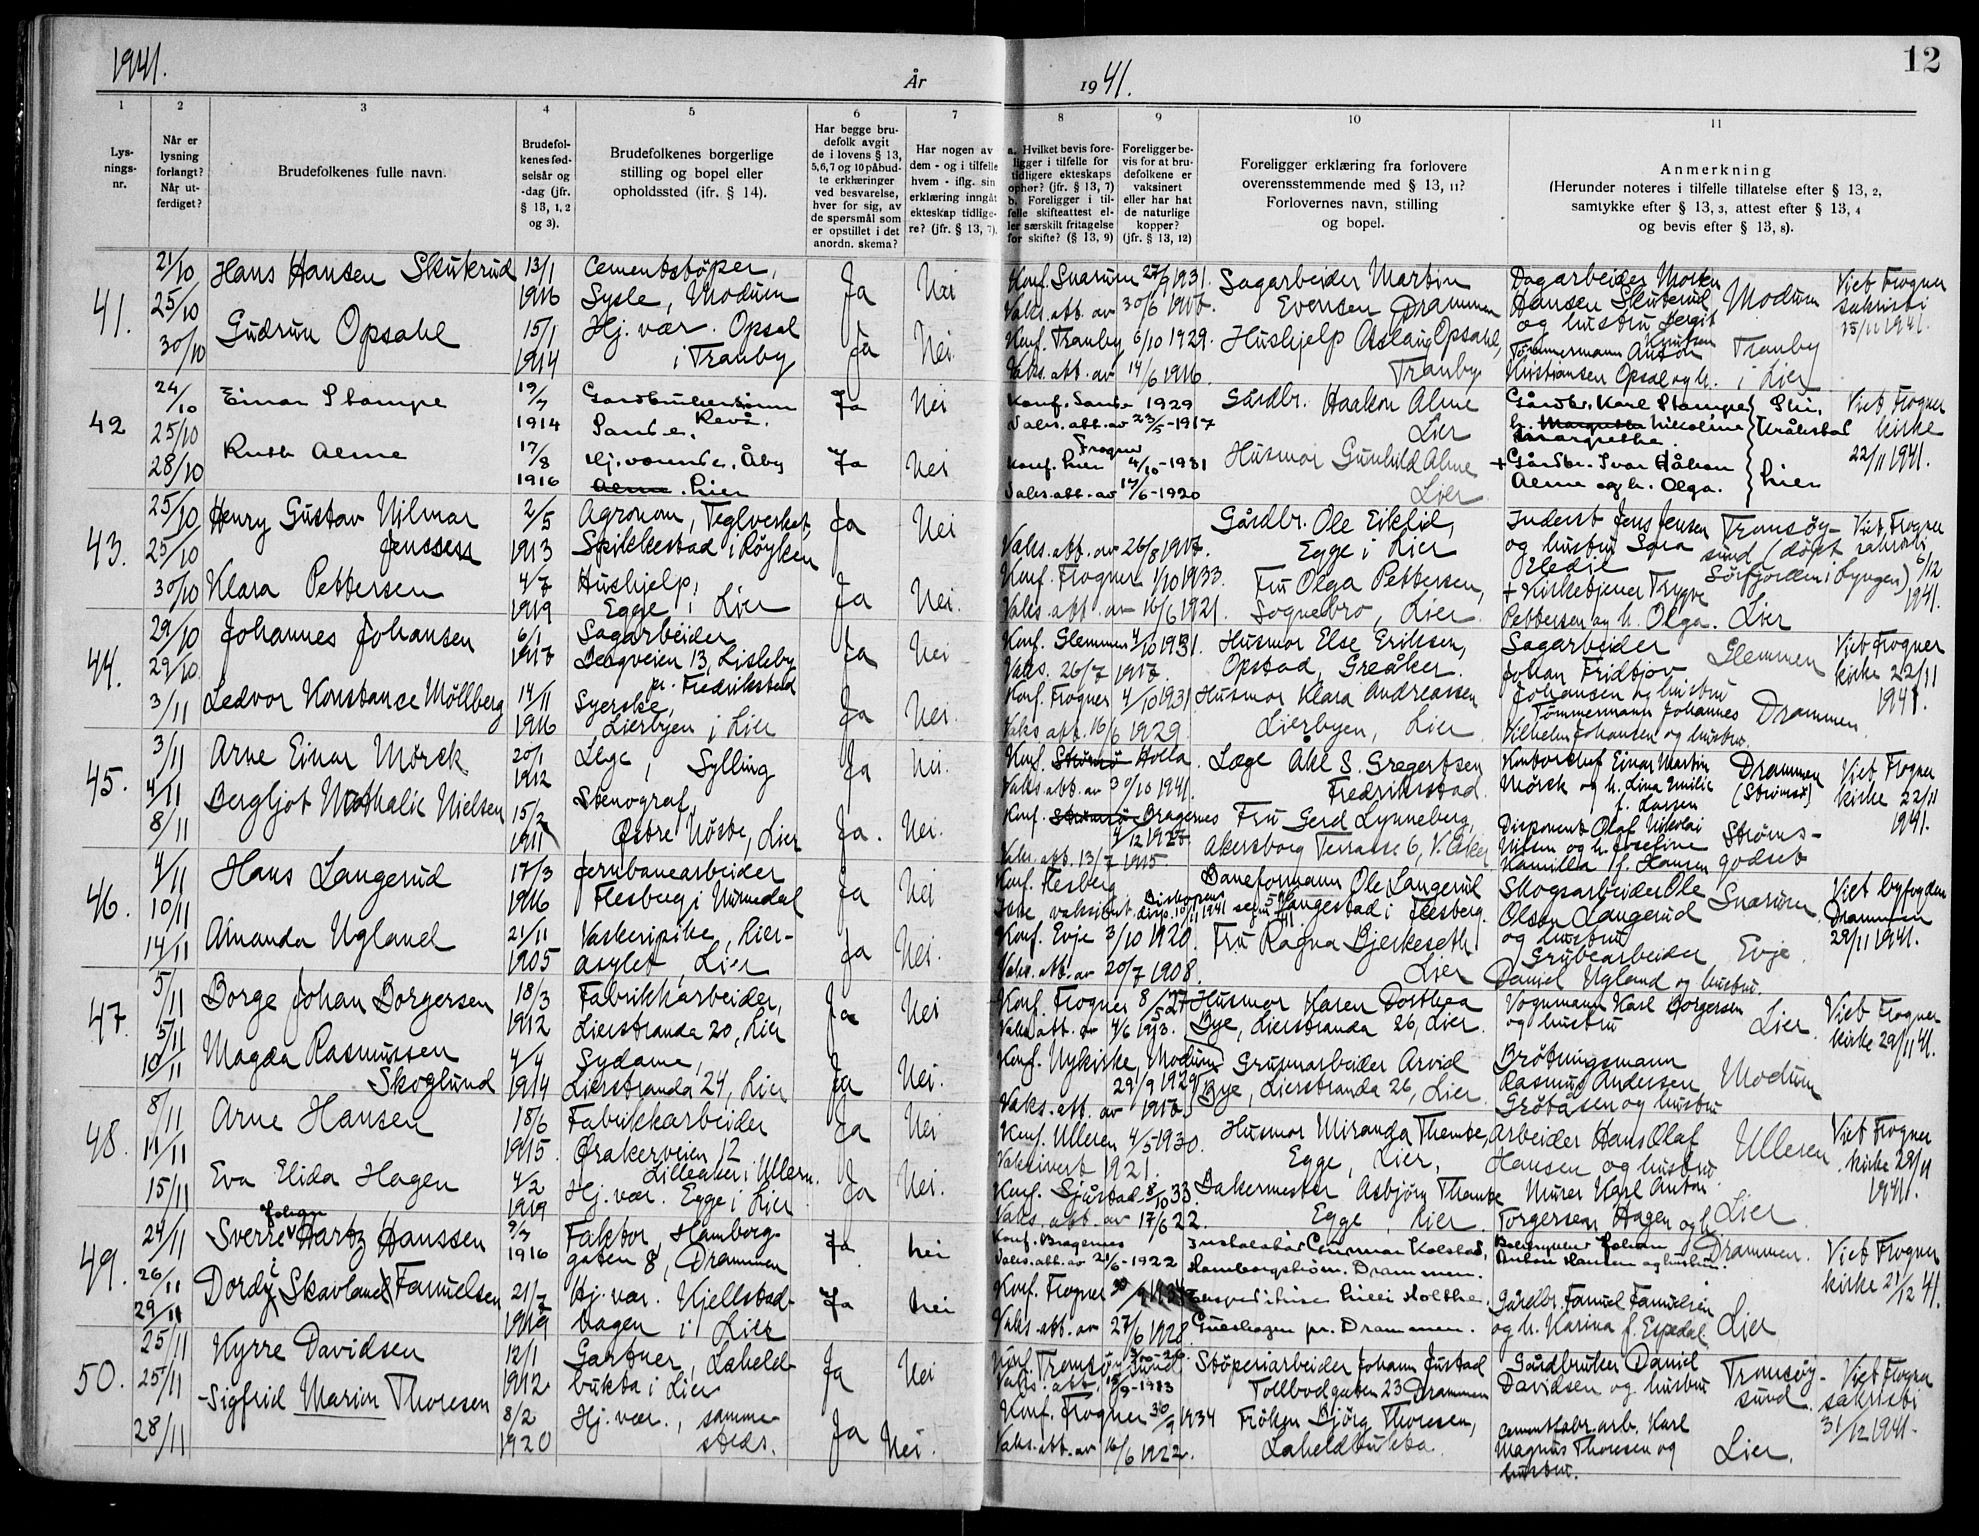 1941.
År
1941.
12
1
2
3
4
5
6
7
8
9
10
11
Lys-
nings-
nr.
Når er
lysning
forlangt?
Når ut-
ferdiget?
Brudefolkenes fulle navn.
Brudefol-
kenes fød-
selsår og
-dag (jfr.
§ 13, 1, 2
og 3).
Brudefolkenes borgerlige
stilling og bopel eller
opholdssted (ifr. § 14).
Har begge bru-
defolk avgit
de i lovens § 13,
5,6,7 og 10 påbud-
te erklæringer
ved besvarelse,
hver for sig, av
de spørsmål som
er opstillet i det
anordn. skema?
Har nogen av
dem - og i tilfelle
hvem - iflg. sin
erklæring inngåt
ekteskap tidlige-
re? (jfr. § 13, 7).
a. Hvilket bevis fore-
ligger i tilfelle for
tidligere ekteskaps
ophør? (jfr. § 13, 7)
b. Foreligger i til-
felle skifteattest el-
ler særskilt fritagelse
for skifte? (§ 13, 9)
Foreligger be-
vis for at bru-
defolkene er
vaksinert
eller har hat
de naturlige
kopper?
(jfr. § 13, 12)
Foreligger erklæring fra forlovere
overensstemmende med § 13, 11?
Forlovernes navn, stilling
og bopel.
Anmerkning
(Herunder noteres i tilfelle tillatelse efter § 13, 2,
samtykke efter § 13, 3, attest efter § 13, 4
og bevis efter § 13, 8).
41.
21/10
25/10
30/10
Hans Hansen Skuterud
Gudrun Opsahl
13/1
1916
15/1
1914
Cementstøper,
Sysle, Modum
Hj. vær. Opsal
i Tranby
Ja
Ja
Nei
Nei.
Konf. Snarum 27/9 1931.
Vaks. att. av 30/6 1917.
Konf. Tranby 6/10 1929.
Vaks. att. av 14/6 1916.
Sagarbeider Martin
Evensen Drammen
Hushjelp Aslaug Opsahl,
Tranby
Dagarbeider Morten
Hansen Skuterud
og hustru Bergit
Knutsen
Tømmermann Anton
Kristiansen Opsal og h.
Modum
Tranby
i Lier
Viet Frogner
sakristi
15/11 1941.
42
24/10
25/10
28/10
Einar Stampe
Ruth Alme
19/7
1914
17/8
1916
Gardbrukersønn
Revå.
Sande.
Hj. værende. Åby
Alme. Lier
Ja
Ja
Nei
Nei
Konf. Sande 1929
Vaks. att. av 23/5-1917
Frogner
Konf. Lier 4/10-1931
Vaks. att. av 17/6-1920
Gårdbr. Haakon Alme
Lier
Husmor Gunhild Alme
Lier
Gårdbr. Karl Stampe
h. Margrethe Nikoline
Margrethe.
+ Gårdbr. Ivar Håkon
Alme og h. Olga.
Ski.
Kråkstad
Lier
Viet Frogner
kirke
22/11 1941.
43.
25/10
25/10
30/10
Henry Gustav Hilmar
Jenssen
Klara Pettersen
2/5
1913
4/7
1919
Agronom, Teglverket,
Spikkestad i Røyken
Hushjelp,
Egge i Lier
Ja
Ja
Nei
Nei.
Vaks. att. av 26/8 1917.
Konf. Frogner 1/10 1933.
Vaks. att. av 16/6 1921.
Gårdbr. Ole Eiklid,
Egge i Lier
Fru Olga Pettersen,
Sognebro, Lier
Inderst Jens Jensen
og hustru Sara
+ Kirketjener Trygve
Pettersen og h. Olga.
Tromsøy-
sund (døpt
Sørfjorden i Lyngen)
Lier
Viet Frogner
sakristi
6/12
1941.
44.
29/10
29/10
3/11
Johannes Johansen
Ledvor Konstance Møllberg
6/1
1917
14/11
1916
Sagarbeider
Bergveien 13, Lisleby
pr. Fredrikstad
Syerske,
Lierbyen i Lier
Ja
Ja
Nei
Nei.
Konf. Glemmen 4/10 1931.
Vaks. 26/7 1917.
Konf. Frogner 4/10 1931
Vaks att. 16/6 1929.
Husmor Else Eriksen,
Opstad, Greåker.
Husmor Klara Andreassen
Lierbyen, Lier
Sagarbeider
Johan Fridtjov
Johansen og hustru
Tømmermann Johannes
Vilhelm Johansen og hustru
Glemmen
Drammen.
Viet Frogner
kirke 22/11
1941.
45.
3/11
4/11
8/11
Arne Einar Mørck
Bergljot Nathalie Nielsen
20/1
1912
15/2
1911
Lege, Sylling
Stenograf,
Østre Nøste, Lier
Ja
Ja.
Nei.
Nei.
Konf. Strømsø Holla.
Vaks att. av 30/10 1941.
Konf. Strømsø Bragernes
4/12 1927.
Vaks. att. 13/7 1915.
Læge Axel S. Gregertsen
Fredrikstad.
Fru Gerd Lynneberg,
Akersborg Terrasse 6, V. Aker
Kontorchef Einar Martin
Mørck og h. Lina Emilie
f. Larsen
Disponent Olaf Nikolai
Nilsen og h. Josefine
Kamilla f. Hansen
Drammen
(Strømsø)
Strøms-
godset
Viet Frogner
kirke 22/11
1941.
46.
4/11
10/11
14/11
Hans Langerud
Amanda Ugland
17/3
1916
21/11
1905
Jernbanearbeider
Flesberg i Numedal
Vaskeripike, Lier-
asylet, Lier
Ja
Ja
Nei
Nei.
Konf. Flesberg
Ikke vaksinert. Biskopens
disp. 10/11 1941
Konf. Evje 3/10 1920.
Vaks. att. av 20/7 1908.
Baneformann Ole Langerud
Langestad i Flesberg.
Fru Ragna Bjerkeseth
Lier
Skogsarbeider Ole
Olsen Langerud
og hustru
Grubearbeider
Daniel Ugland og hustru.
Snarum.
Evje.
Viet byfogden
Drammen
29/11 1941.
47.
5/11
5/11
10/11
Borge Johan Borgersen
Magda Rasmussen
Skoglund
18/3
1912
4/4
1914
Fabrikkarbeider,
Lierstranda 20, Lier
Sydame,
Lierstranda 24, Lier
Ja
Ja
Nei
Nei.
Konf. Frogner 8/5 27
Vaks att. av 4/6 1913.
Konf. Nykirke, Modum
29/9 1929
Vaks. att. av 1917.
Husmor Karen Dorthea
Bye, Lierstranda 26, Lier.
Grunnarbeider Arvid
Bye, Lierstranda 26, Lier
Vognmann Karl Borgersen
og hustru
Brøtningsmann
Rasmus Andersen
Grøtåsen og hustru
Lier.
Modum
Viet Frogner
kirke 29/11 41.
48.
8/11
11/11
15/11
Arne Hansen
Eva Elida Hagen
18/6
1915.
4/2
1919
Fabrikkarbeider
Ørakerveien 12
Lilleaker i Ullern.
Hj. vær. Egge i Lier
Ja
Ja
Nei
Nei.
Konf. Ullern 4/5 1930.
Vaksinert 1921.
Konf. Sjåstad 8/10 33.
Vaks. att. av 17/6 22.
Husmor Miranda Themte,
Egge, Lier,
Bakermester Asbjørn Themte
Egge, Lier
Arbeider Hans Olaf
Hansen og hustru
Murer Karl Anton
Torgersen Hagen og h.
Ullern
Lier
Viet Frogner
kirke 29/11
1941.
49.
24/11
26/11
29/11
Johan
Sverre Hartz Hanssen
Dordy Skavland Famuelsen
9/7
1916
21/7
1919
Faktor, Hamborg-
gaten 8, Drammen
Hj. vær. Kjellstad-
hagen i Lier
Ja
Ja
Nei
Nei
Konf. Bragernes
Vaks. att. av 21/6-1922
Konf. Frogner
Vaks. att. av 27/6 1928.
Installatør Gunnar Kolstad,
Hamborgstrøm. Drammen.
Ekspeditrise Lilli Holthe.
Gueshagen pr. Drammen.
Johan
Anton Hansen og hustru
Gårdbr. Famuel Famuelsen
og h. Karina f. Espedal
Drammen.
Lier
Viet Frogner
kirke 21/12 41.
50.
25/11
25/11
28/11
Kyrre Davidsen
Sigfrid Marion Thoresen
12/1
1912
8/2
1920
Gartner, Laheld-
bukta i Lier
Hj. vær., samme-
steds.
Ja
Ja
Nei
Nei.
Konf. Tromsøysund
Vaks. att. 15/9-1913
Konf. Frogner 30/9 1934
Vaks. att. av 16/6 1922.
Støperiarbeider Johann Justad
Tollbodgaten 23 Drammen
Frøken Bjørg Thoresen,
Laheldbukta.
Gårdbruker Daniel
Davidsen og hustru
Cementfabr.arb. Karl
Magnus Thoresen og
hustru.
Tromsøy-
sund.
Lier.
Viet Frogner
sakristi
31/12 1941.